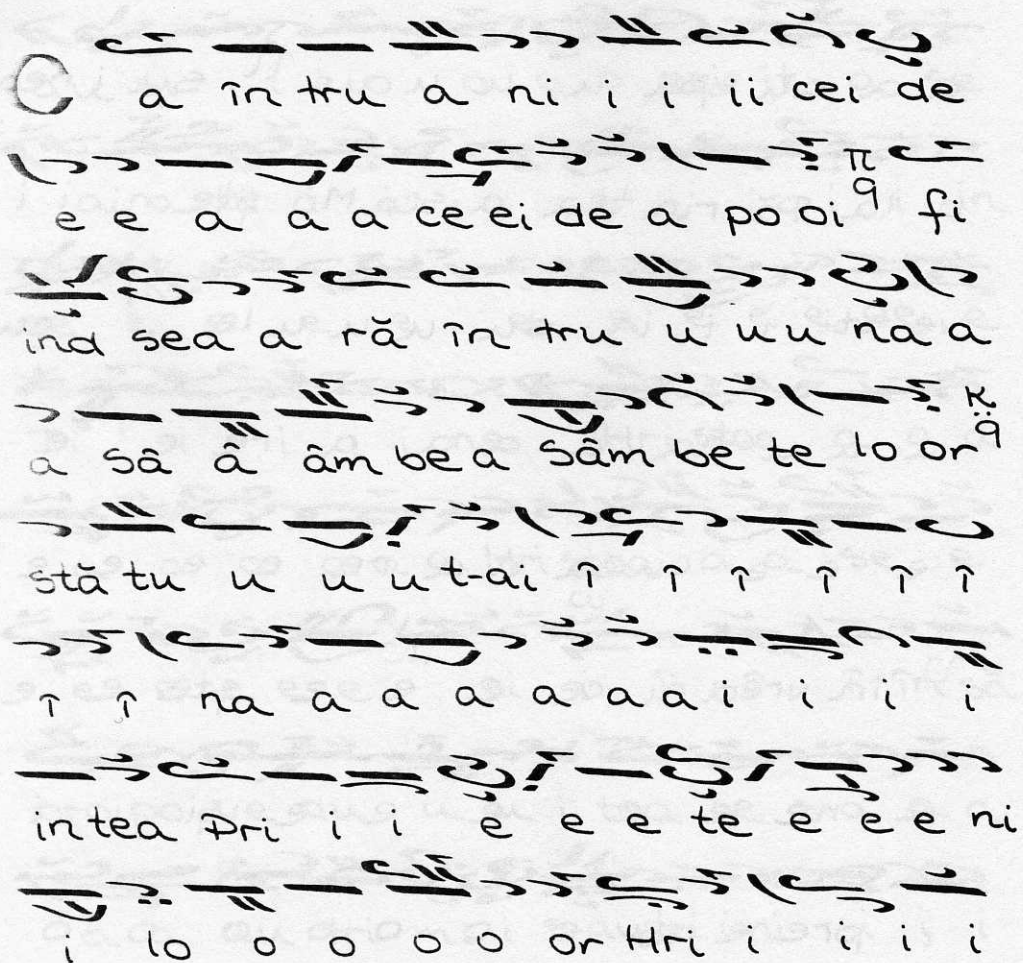 C a în tru a ni i i ii cei de
e e a a a ce ei de a po oi π q fi
ind sea a ră în tru u u u na a
a sâ â âm bea sâm be te lo or q
stă tu u u u t-ai î î î î î î
î î na a a a a a i i i i
intea Pri i i e e e te e e e ni
i lo o o o o or Hri i i i i